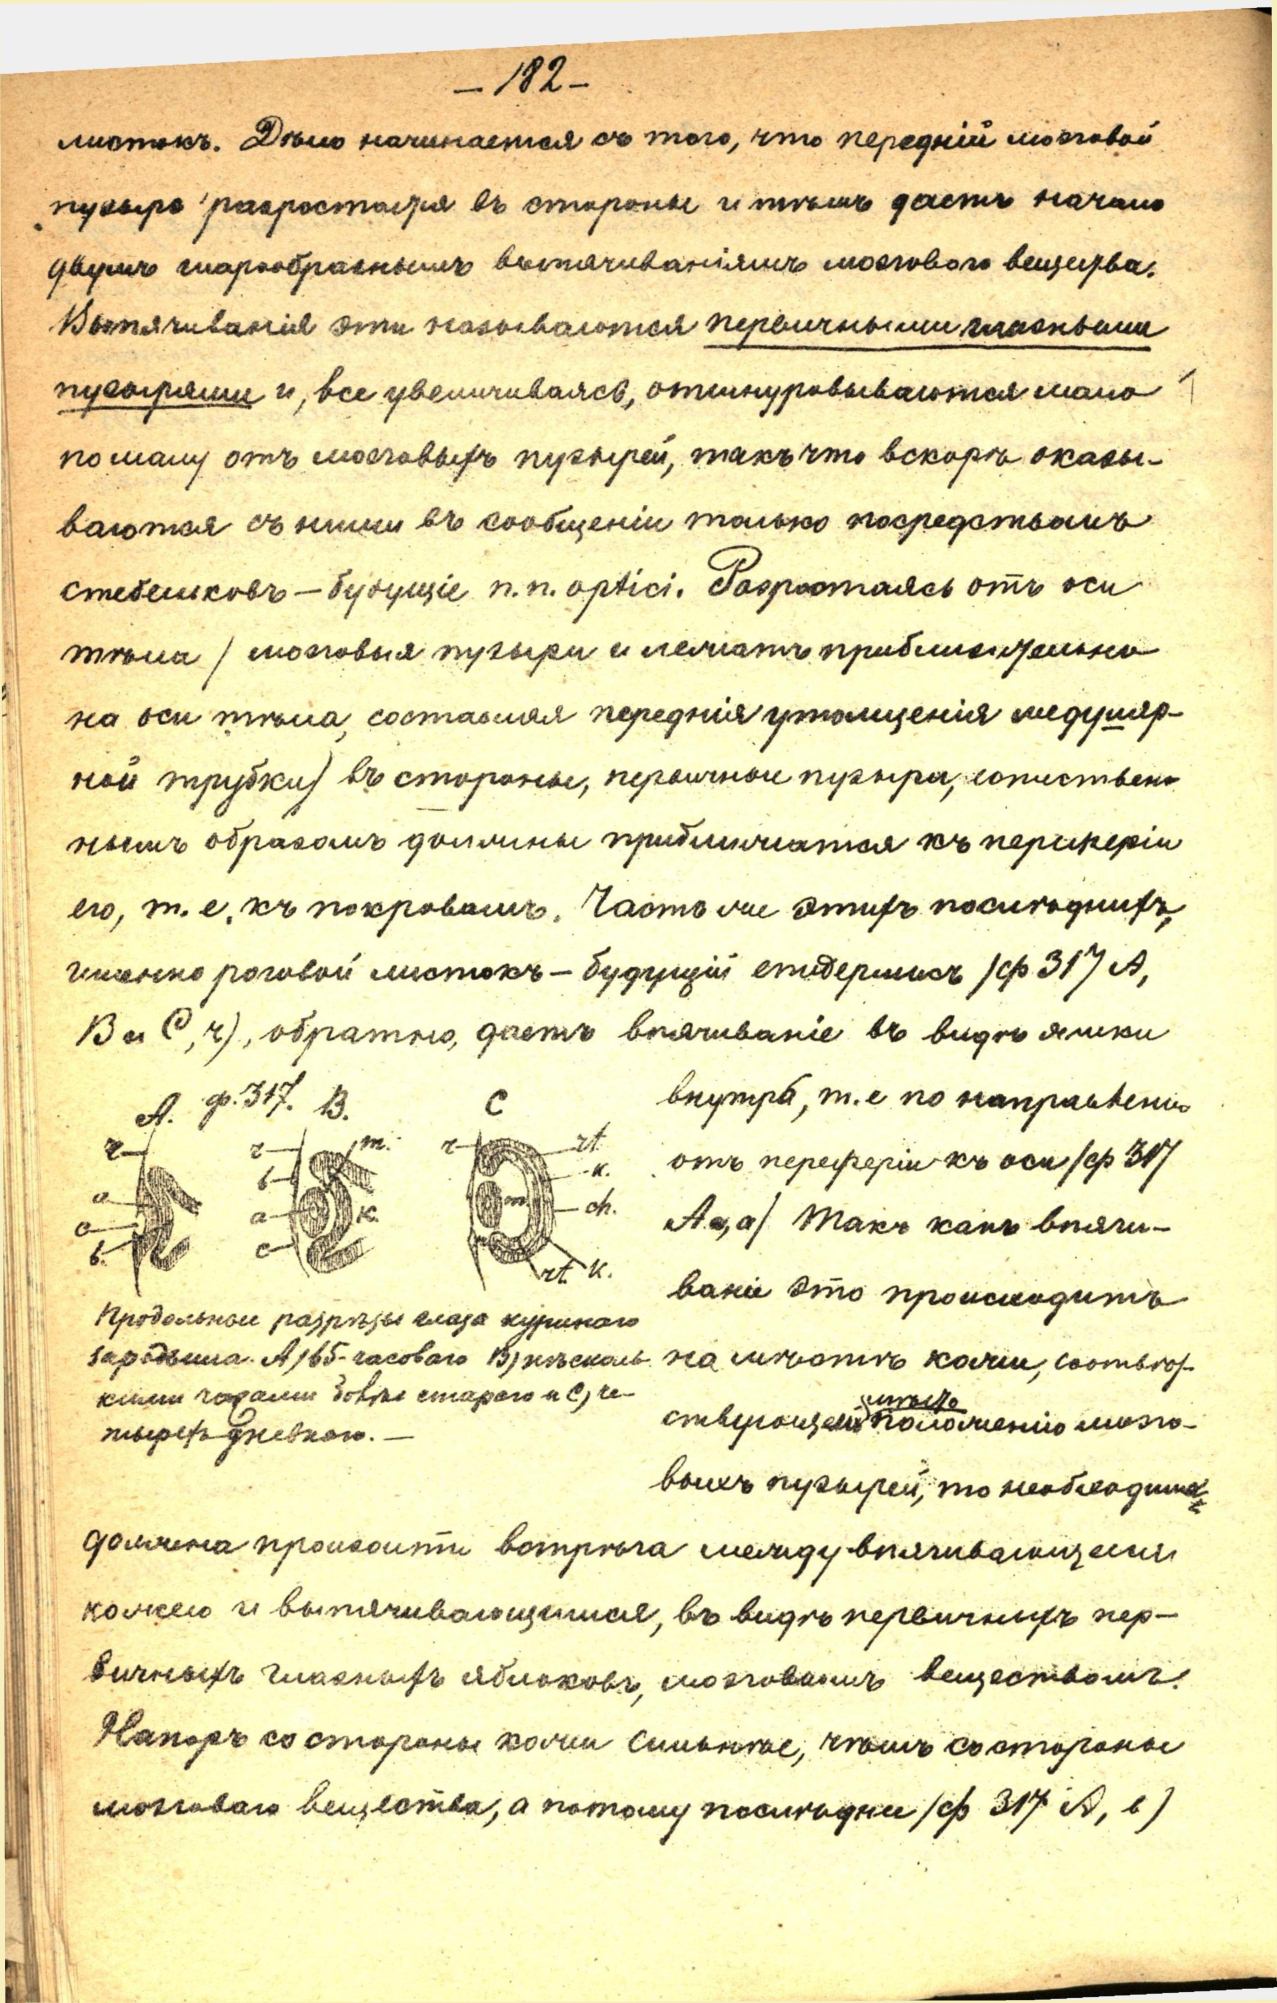 — 182 —
листокъ. Дѣло начинается съ того, что передній мозговой
пузырь разростается въ стороны и тѣмъ даетъ начало
двумъ шарообразнымъ выпячиваніямъ мозгового вещества.
Выпячиванія эти называются первичными глазными
пузырями и, все увеличиваясь, отшнуровываются мало
по малу отъ мозговыхъ пузырей, такъ что вскорѣ оказы-
ваются съ ними въ сообщеніи только посредствомъ
стебельковъ — будущіе n.n. optici. Разростаясь отъ оси
тѣла / мозговыя пузыри и лежатъ приблизительно
на оси тѣла, составляя переднія утолщенія медуляр-
ной трубки) въ стороны, первичные пузыри, естествен-
нымъ образомъ должны приближатся къ периферіи
его, т.е. къ покровамъ. Часть же этихъ послѣднихъ,
именно роговой листокъ — будущій епидермисъ /ф 317 А,
В и С, r), обратно, даетъ впячиваніе въ видѣ ямки
внутрь, т.е по направленію
отъ перефèріи къ оси /ф 317
А а, а/ Такъ какъ впячи-
ваніе это происходитъ
на мѣстѣ кожи, соотвѣт-
ствующей положенію мозго-
выхъ пузырей, то необходимо
A. ф. 317. B. C
r a c b.
r b a c m. k.
r rt k. m ch. rt k.
Продольные разрѣзы глаза куринаго
зародыша. А) 65-часоваго В) нѣсколь-
кими часами болѣе стараго и С) че-
тырехъ дневного. —
должна произойти встрѣча между впячивающеюся
кожею и выпячивающимся, въ видѣ первичныхъ пер-
вичныхъ глазныхъ яблоковъ, мозговымъ веществомъ.
Напоръ со стороны кожи сильнѣе, чѣмъ со стороны
мозговаго вещества, а потому послѣднее /ф 317 А, в)